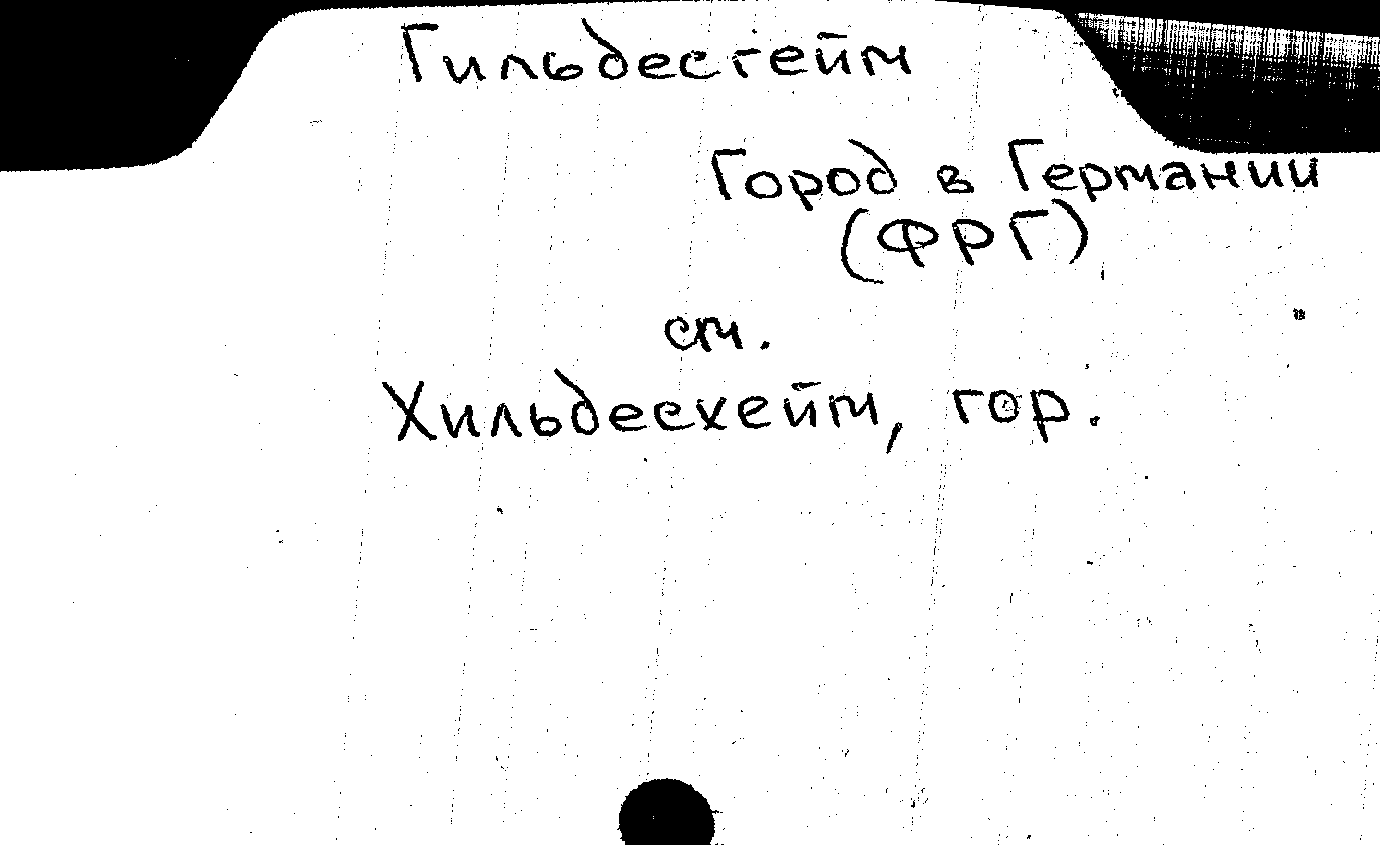 Гильдесгейм
Город в Германии
(ФРГ)
см.
Хильдесхейм, гор.